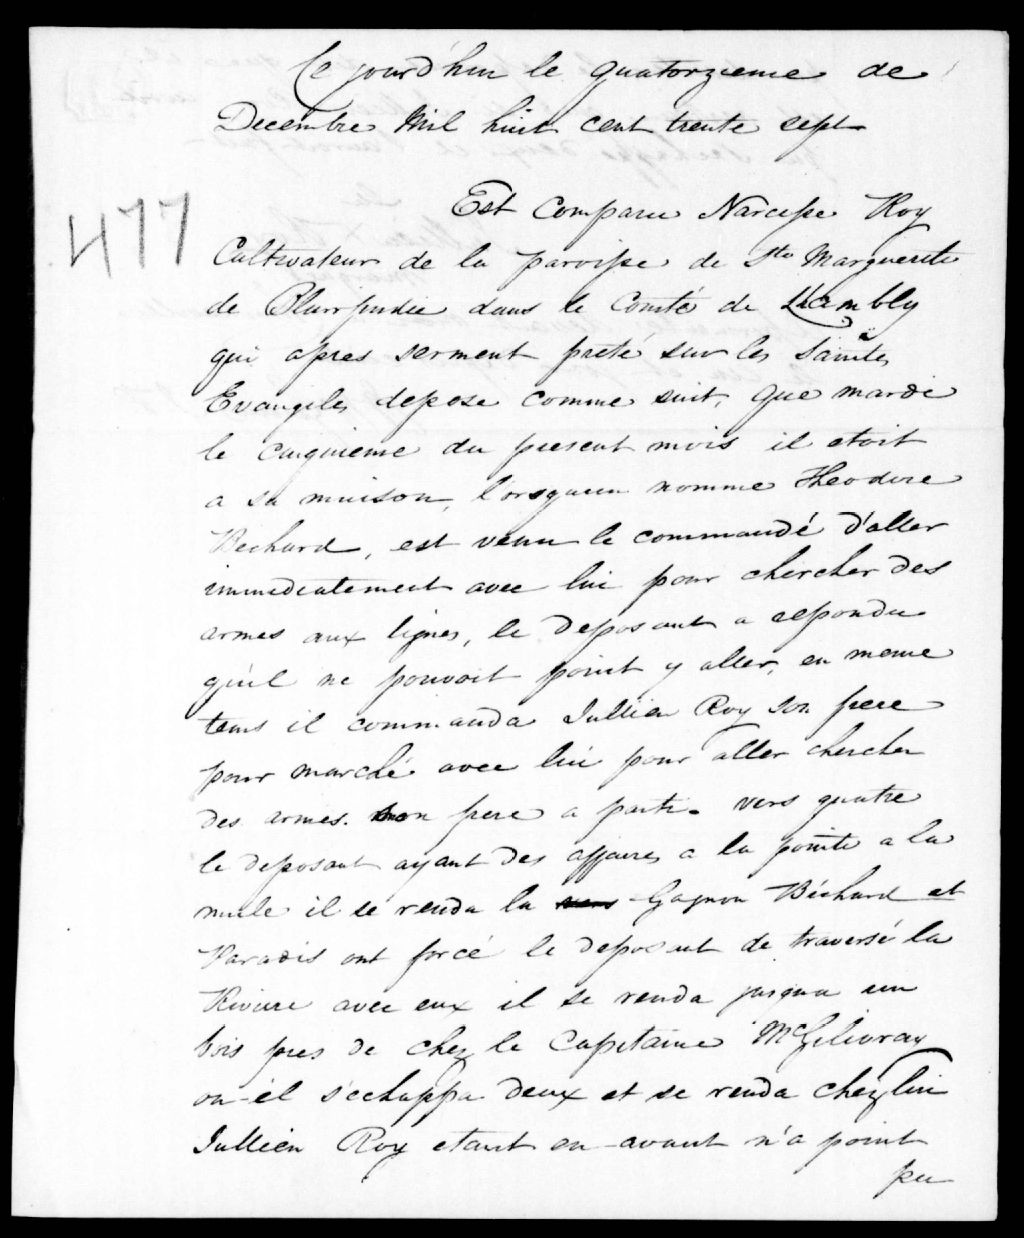 Ce jourd'hui le quatorzieme de
Decembre Mil huit cent trente sept
477
Est Comparu Narcisse Roy
Cultivateur de la paroisse de Ste Marguerite
de Blairfindie dans le Comté de Chambly
qui apres serment preté sur les Saints
Evangiles depose comme suit, Que mardi
le cinquieme du present mois il etoit
a sa maison, lorsqu'un nommé Theodore
Bechard, est venu le commandé d'aller
immediatement avec lui pour chercher des
armes aux lignes, le deposant a repondu
qu'il ne pouvoit point y aller, en meme
tems il commanda Jullien Roy son frere
pour marché avec lui pour aller chercher
des armes. son frere a parti. vers quatre
le deposant ayant des affaires a la pointe a la
mule il se renda la Gagnon Béchard et
Paradis ont forcé le deposant de traversé la
Riviere avec eux il se renda jusqua un
bois pres de chez le Capitaine McGilivray
ou il s'echappa deux et se renda chez lui
Jullien Roy etant en avant n'a point
pu